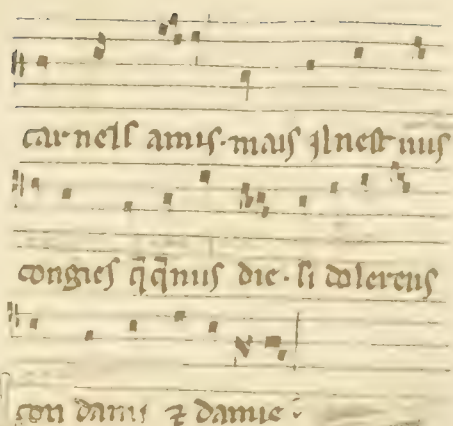 carnelſ amis·maiſ ilneſt nus
congieſ q̄ q̄nuſ die·ſi doler⁊us
con damı ⁊ damie·